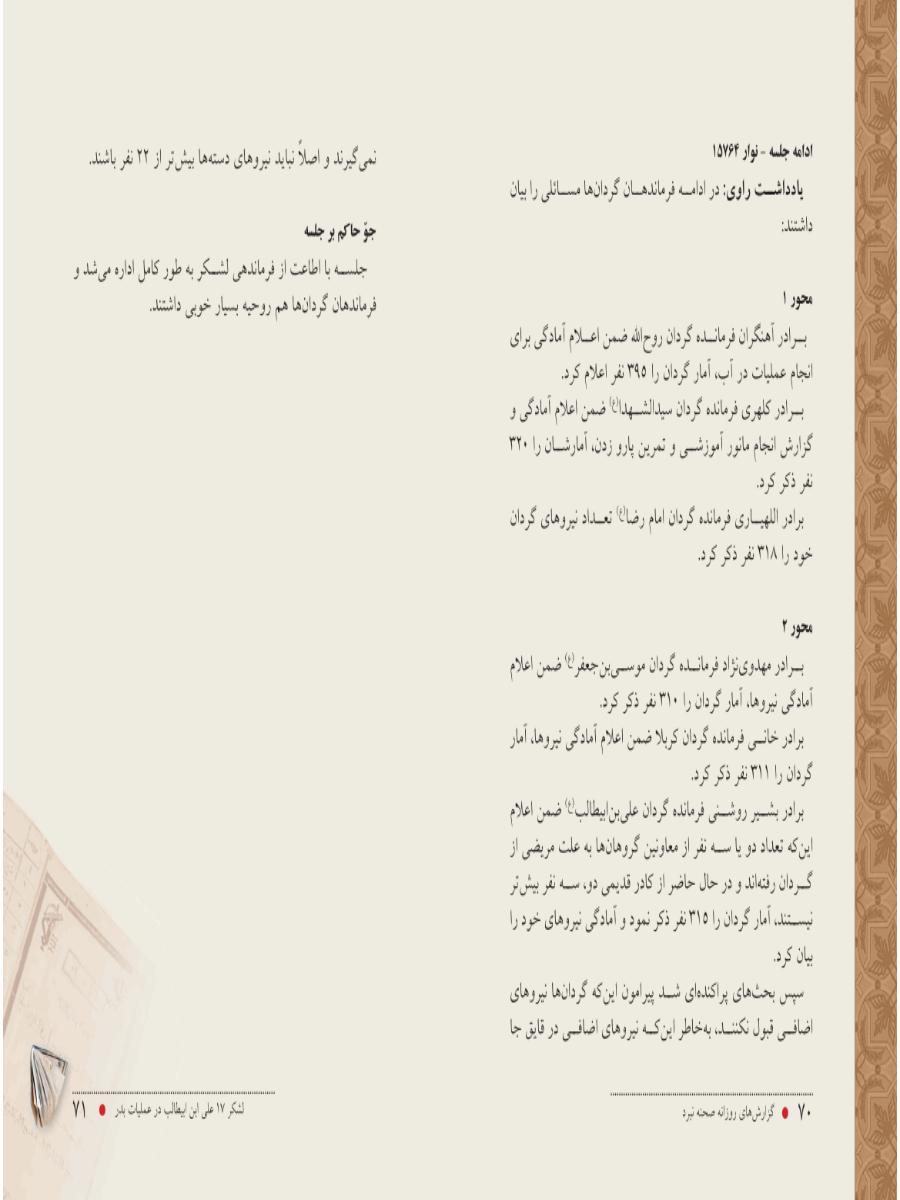 ادامه جلسه - نوار ۱۵۷۶۴
یادداشت راوی: در ادامه فرماندهان گردان‌ها مسائلی را بیان
داشتند:
محور ۱
برادر آهنگران فرمانده گردان روح‌الله ضمن اعلام آمادگی برای
انجام عملیات در آب، آمار گردان را ۳۹۵ نفر اعلام کرد.
برادر کلهری فرمانده گردان سیدالشهدا(ع) ضمن اعلام آمادگی و
گزارش انجام مانور آموزشی و تمرین پارو زدن، آمارشان را ۳۲۰
نفر ذکر کرد.
برادر اللهیاری فرمانده گردان امام رضا(ع) تعداد نیروهای گردان
خود را ۳۱۸ نفر ذکر کرد.
محور ۲
برادر مهدوی‌نژاد فرمانده گردان موسی‌بن‌جعفر(ع) ضمن اعلام
آمادگی نیروها، آمار گردان را ۳۱۰ نفر ذکر کرد.
برادر خانی فرمانده گردان کربلا ضمن اعلام آمادگی نیروها، آمار
گردان را ۳۱۱ نفر ذکر کرد.
برادر بشیر روشنی فرمانده گردان علی‌بن‌ابیطالب(ع) ضمن اعلام
این‌که تعداد دو یا سه نفر از معاونین گروهان‌ها به علت مریضی از
گردان رفته‌اند و در حال حاضر از کادر قدیمی دو، سه نفر بیش‌تر
نیستند، آمار گردان را ۳۱۵ نفر ذکر نمود و آمادگی نیروهای خود را
بیان کرد.
سپس بحث‌های پراکنده‌ای شد پیرامون این‌که گردان‌ها نیروهای
اضافی قبول نکنند، به‌خاطر این‌که نیروهای اضافی در قایق جا
۷۰ ● گزارش‌های روزانه صحنه نبرد
نمی‌گیرند و اصلاً نباید نیروهای دسته‌ها بیش‌تر از ۲۲ نفر باشند.
جوّ حاکم بر جلسه
جلسه با اطاعت از فرماندهی لشکر به طور کامل اداره می‌شد و
فرماندهان گردان‌ها هم روحیه بسیار خوبی داشتند.
لشکر ۱۷ علی ابن ابیطالب در عملیات بدر ● ۷۱